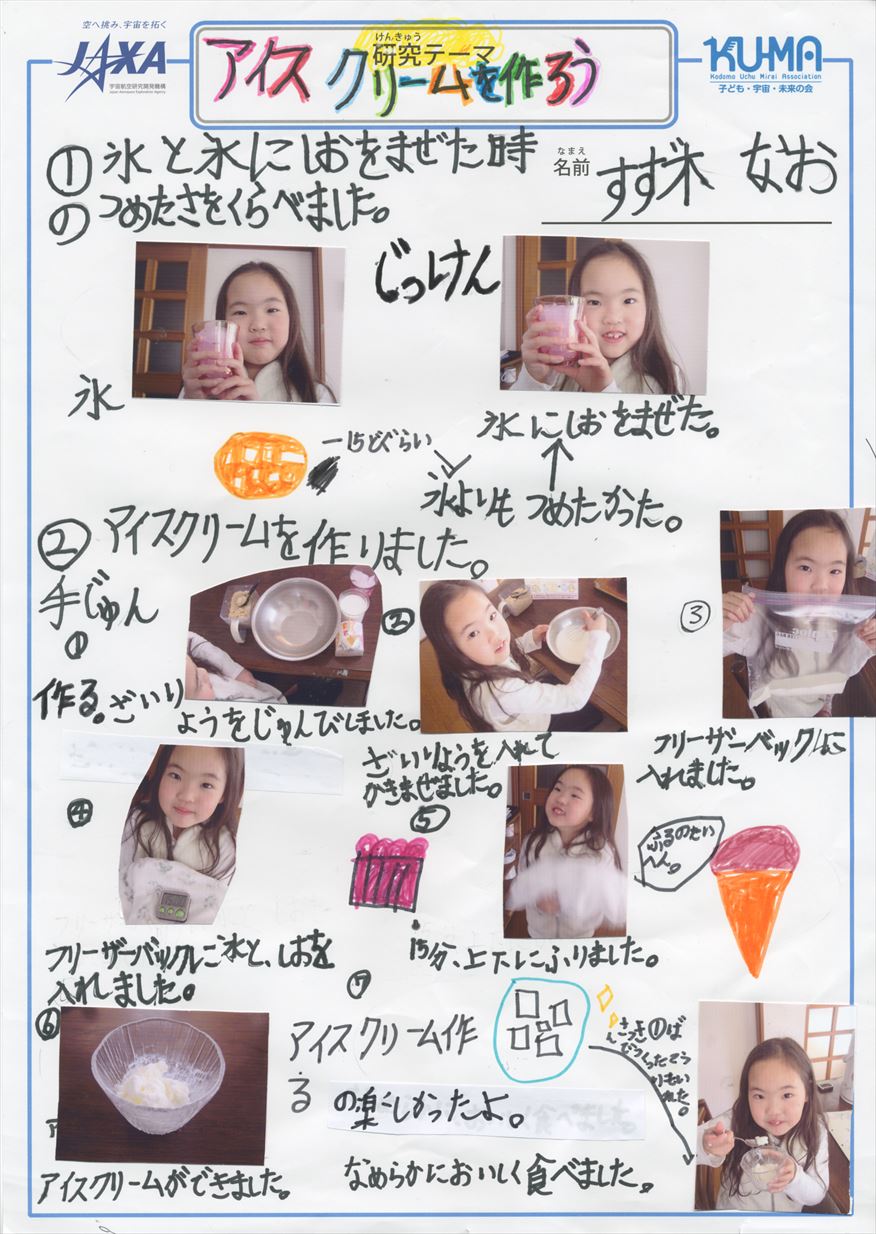 空へ挑み、宇宙を拓く
JAXA
宇宙航空研究開発機構
Japan Aerospace Exploration Agency
けんきゅう
研究テーマ
アイスクリームを作ろう
KU-MA
Kodomo Uchu Mirai Association
子ども・宇宙・未来の会
なまえ
名前
すず木 なお
①氷と氷にしおをまぜた時
のつめたさをくらべました。
じっけん
氷
氷にしおをまぜた。
-15どぐらい
氷よりもつめたかった。
②アイスクリームを作りました。
手じゅん
①
作る。ざいり
ようをじゅんびしました。
②
ざいりようを入れて
かきまぜました。
③
フリーザーバックに
入れました。
④
フリーザーバックに氷と、しおを
入れしました。
⑤
15分、上下にふりました。
ふるのたい
へん。
⑥
アイスクリームができました。
⑦
アイスクリーム作
る
の楽しかったよ。
なめらかにおいしく食べました。